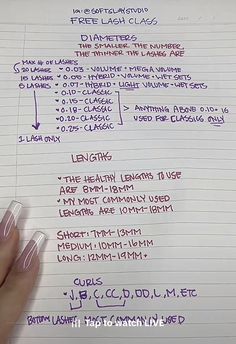 IG: @SOFTSLAYSTUDIO
FREE LASH CLASS
DIAMETERS
THE SMALLER THE NUMBER,
THE THINNER THE LASHES ARE
MAX # OF LASHES
20 LASHES • 0.03 - VOLUME + MEGA VOLUME
10 LASHES • 0.05 - HYBRID + VOLUME + WET SETS
5 LASHES • 0.07 - HYBRID + LIGHT VOLUME + WET SETS
• 0.10 - CLASSIC
• 0.15 - CLASSIC
• 0.18 - CLASSIC
• 0.20 - CLASSIC
• 0.25 - CLASSIC
> ANYTHING ABOVE 0.10 IS
USED FOR CLASSICS ONLY
1 LASH ONLY
LENGTHS
• THE HEALTHY LENGTHS TO USE
ARE 8MM-18MM
• MY MOST COMMONLY USED
LENGTHS ARE 10MM-18MM
SHORT: 7MM-13MM
MEDIUM: 10MM-16MM
LONG: 12MM-19MM+
CURLS
• J, B, C, CC, D, DD, L, M, ETC
Tap to watch LIVE
BOTTOM LASHES MOST COMMONLY USED